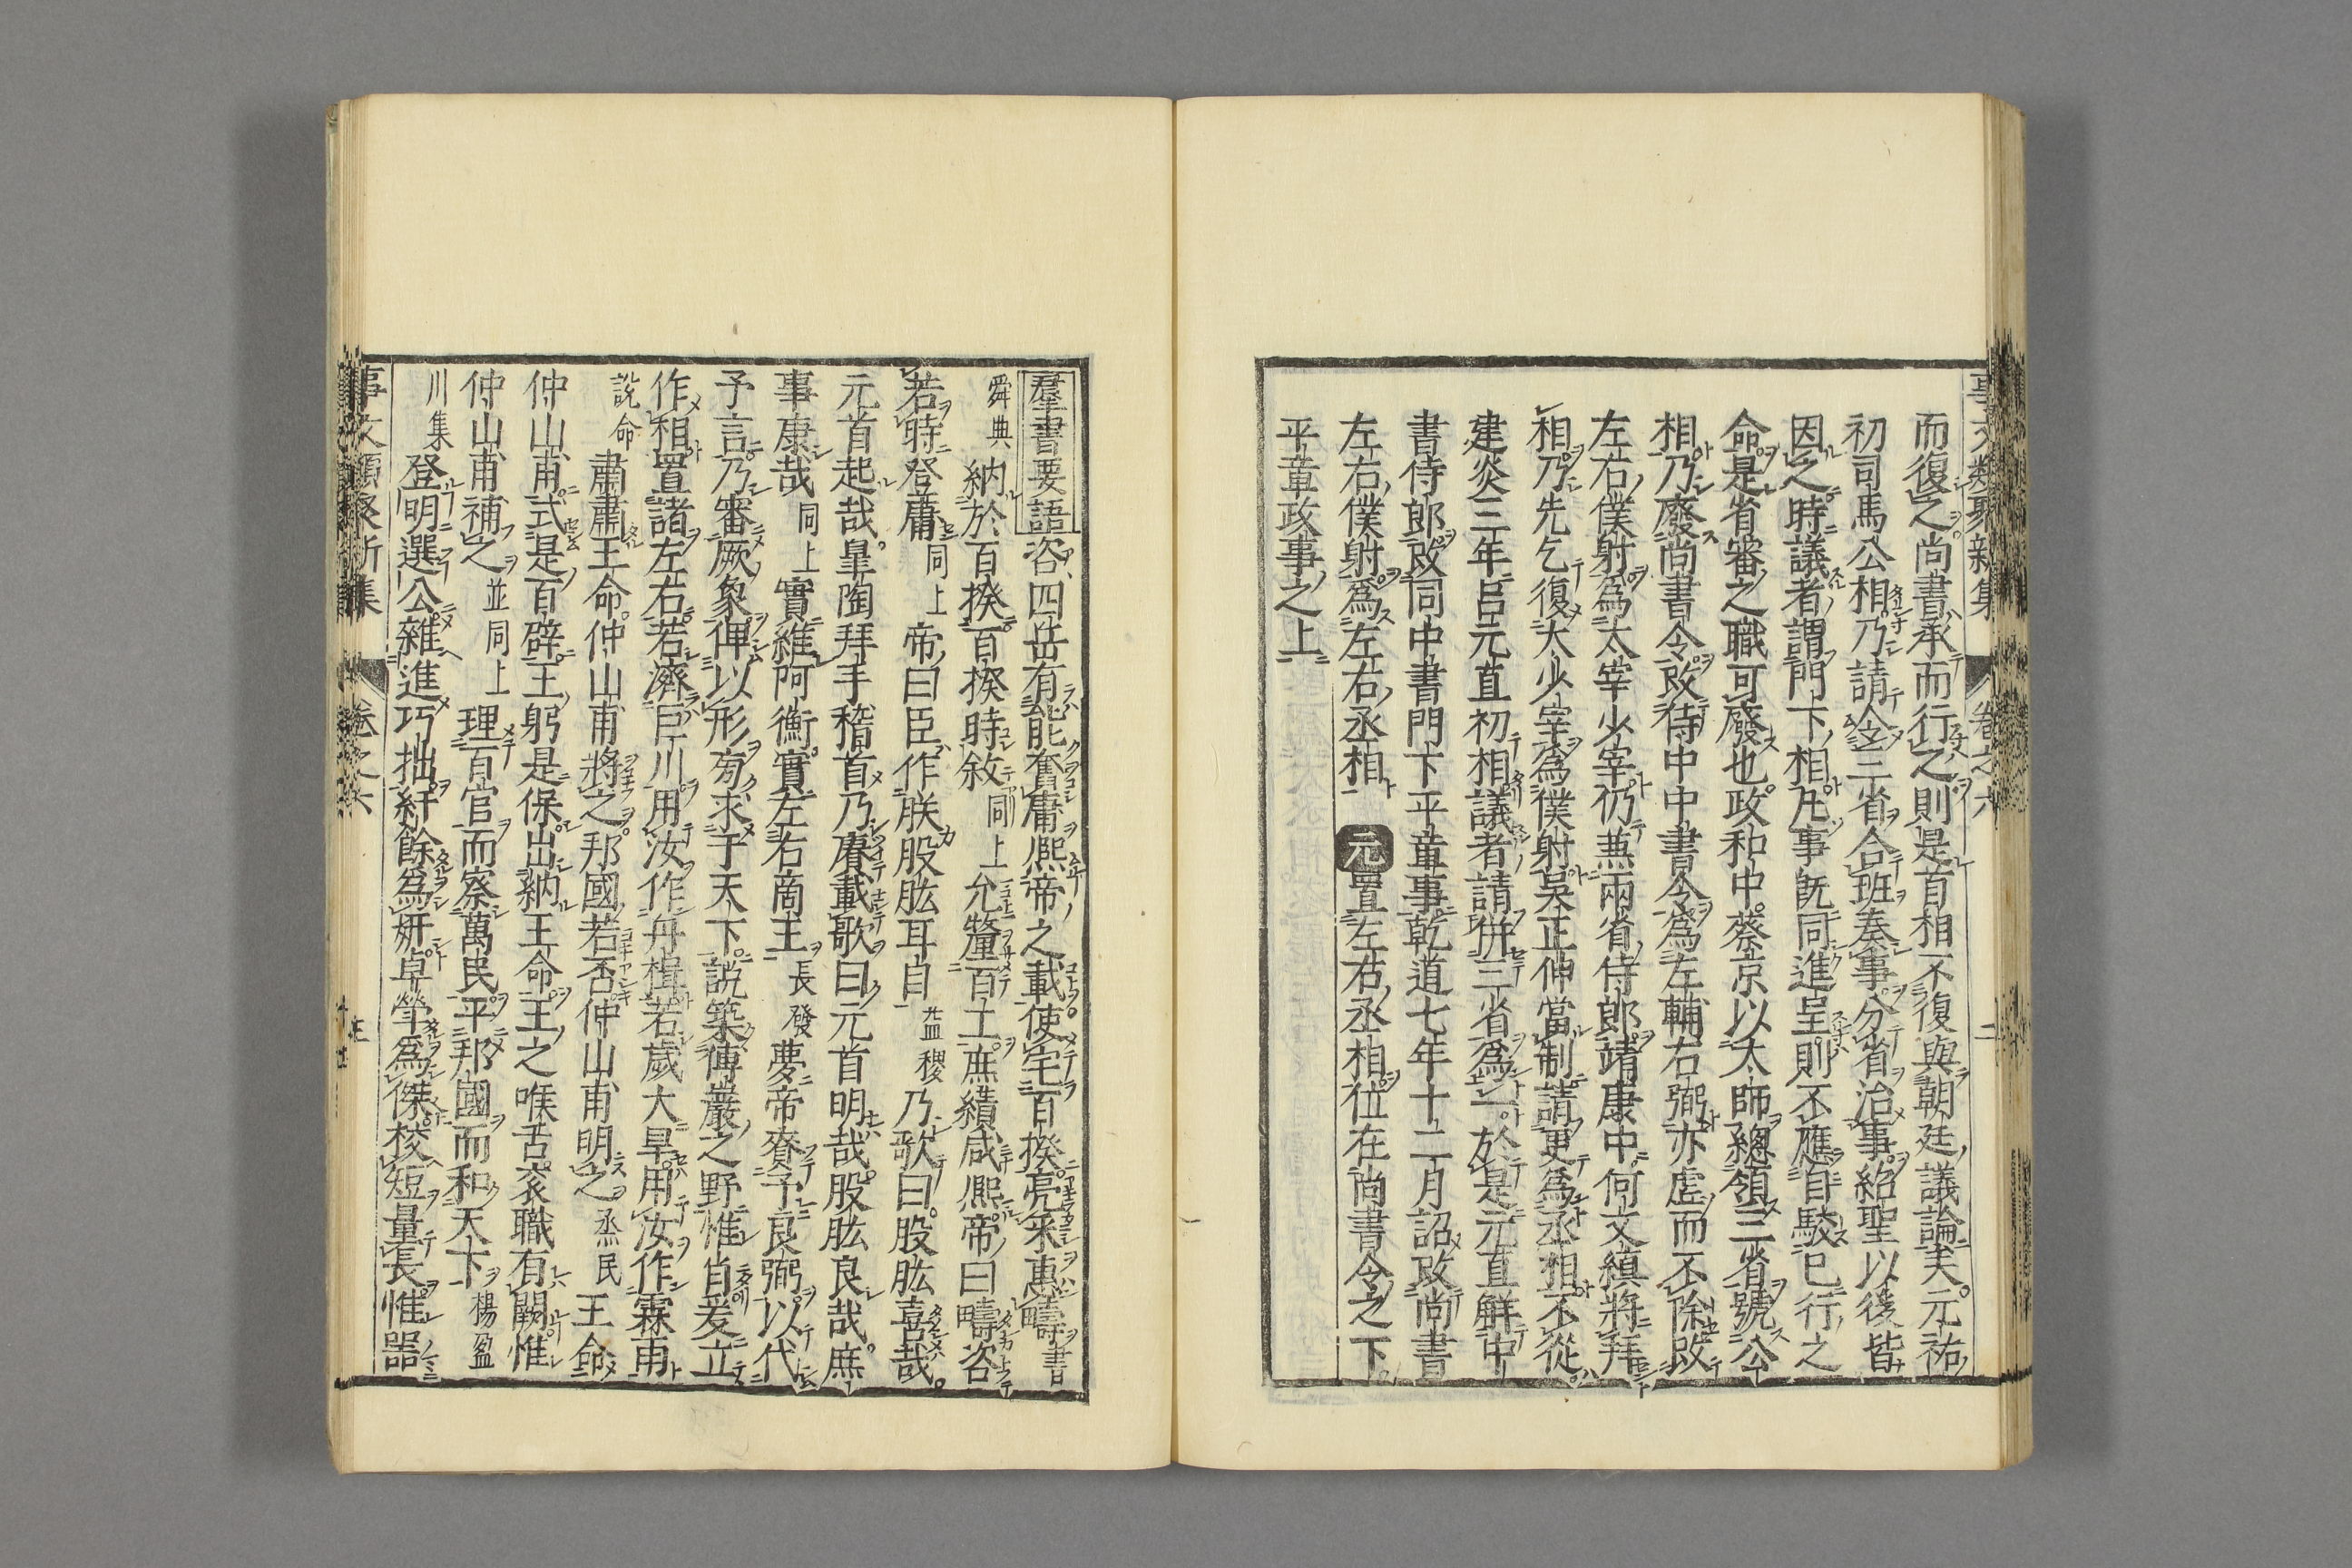 事文類聚新集 卷之六 二
而復之尚書承而行之則是首相不復與朝廷議論矣元祐
初司馬公相乃請令三省合班奏事分省治事紹聖以後皆
因之時議者謂門下相凡事既同進呈則不應自駮已行之
命是省審之職可廢也政和中蔡京以太師總領三省號公
相乃廢尚書令改侍中中書令為左輔右弼亦虛而不除改
左右僕射為太宰少宰仍蒹兩省侍郎靖康中何文縝將拜
相乃先乞復太少宰為僕射吳正仲當制請更為丞相不從
建炎三年呂元直初相議者請併三省為一於是元直鮮中
書侍郎改同中書門下平章事乾道七年十二月詔改尚書
左右僕射為左右丞相 元置左右丞相位在尚書令之下
平章政事之上
羣書要語 咨四岳有能奮庸熈帝之載使宅百揆亮采惠疇書
舜典 納於百揆百揆時敘同上 允釐百工庶績咸熈帝曰疇咨
若時登庸同上 帝曰臣作朕股肱耳目益稷 乃歌曰股肱喜哉
元首起哉臯陶拜手稽首乃賡載歌曰元首明哉股肱良哉庶
事康哉同上 實維阿衡實左右商王長發 夢帝賚予良弼以代
予言乃審厥象俾以形旁求于天下說築傅巖之野惟肖爰立
作相置諸左右若濟巨川用汝作舟楫若歲大旱用汝作霖雨
說命 肅肅王命仲山甫將之邦國若否仲山甫明之烝民 王命
仲山甫式是百辟王躬是保出納王命王之喉舌衮職有闕惟
仲山甫補之並同上 理百官而察萬民平邦國而和天下楊盈
川集 登明選公雜進巧拙紆餘為妍卓犖為傑校短量長惟噐
事文類聚新集 卷之六